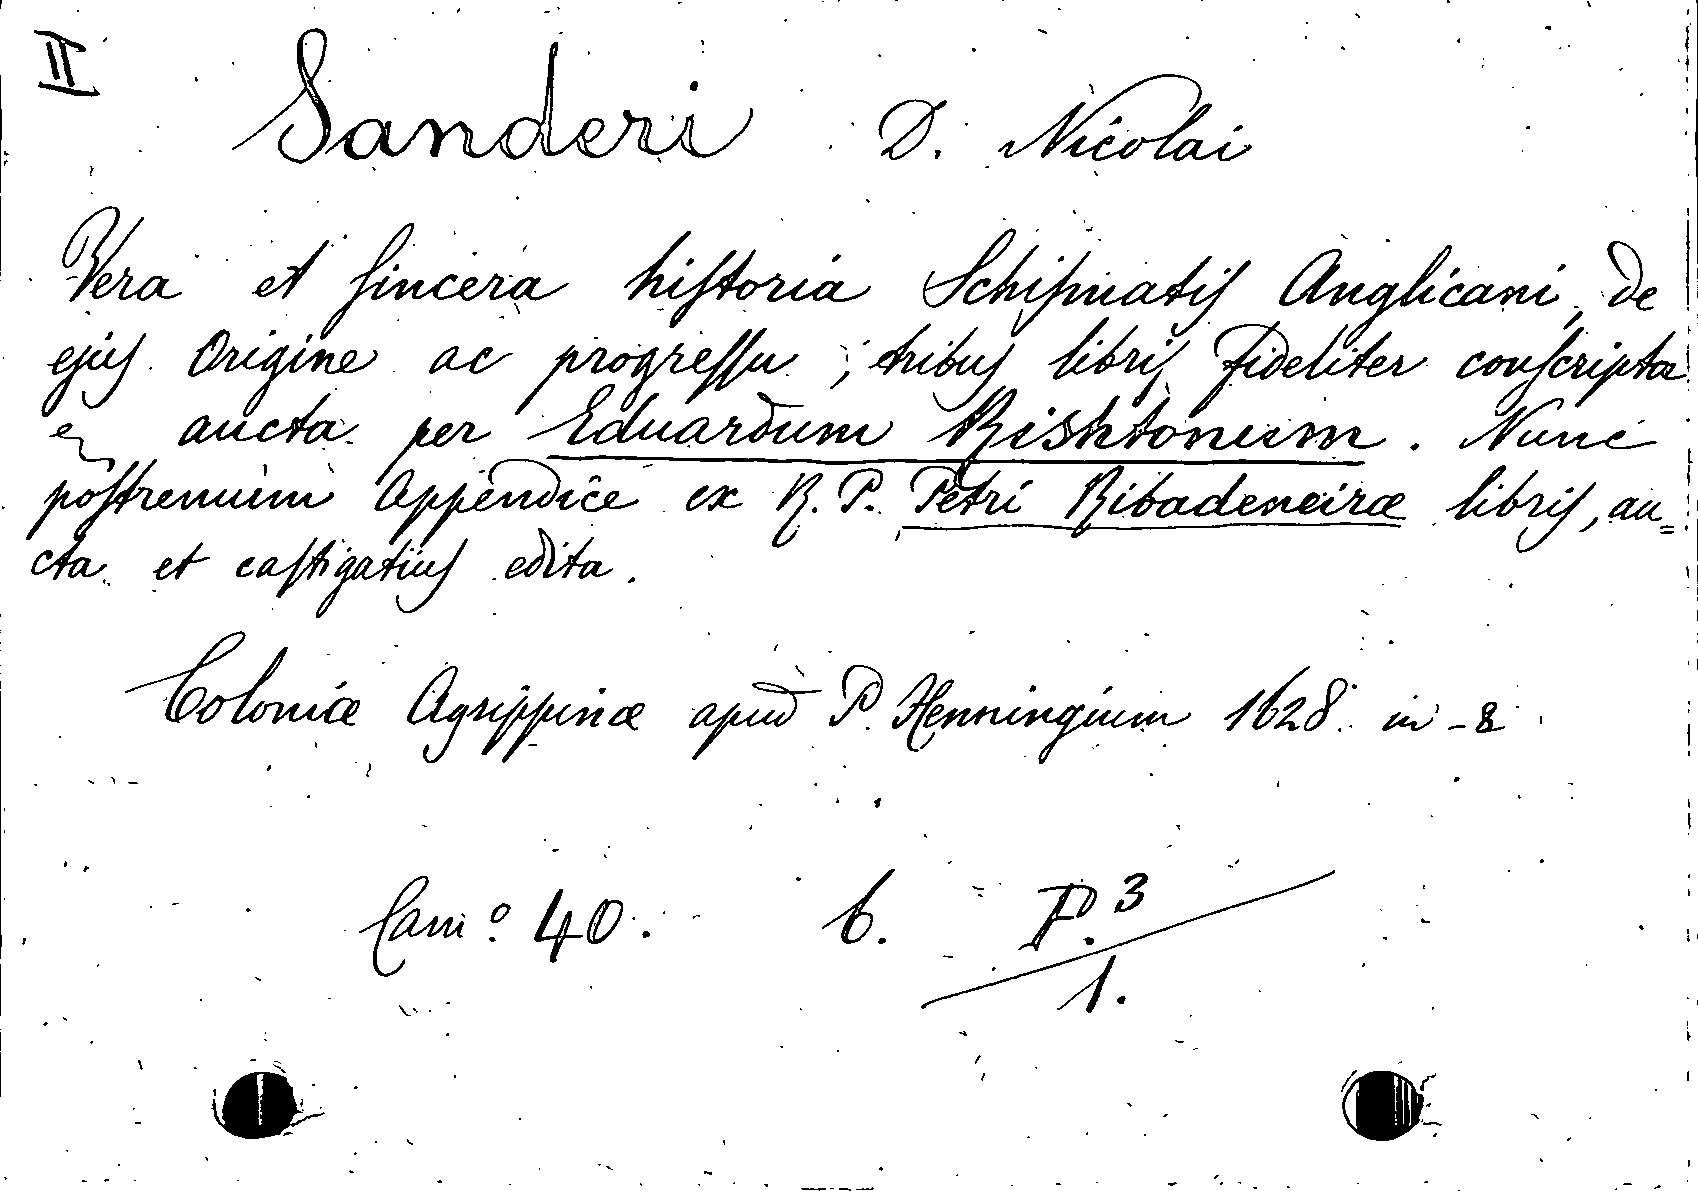 II
Sanderi D. Nicolai
Vera et ſincera hiſtoria Schiſmatis Anglicani, de
ejus Origine ac progreſſu, tribus libris fideliter conſcripta
et aucta per Eduardum Rishtonum. Nunc
poſtremum Appendice ex R. P. Petri Ribadeneiræ libris, au=
cta et caſtigatius edita.
Coloniæ Agrippinæ apud P. Henningium 1628. in-8
Cam.º 40. b. P.3
1.